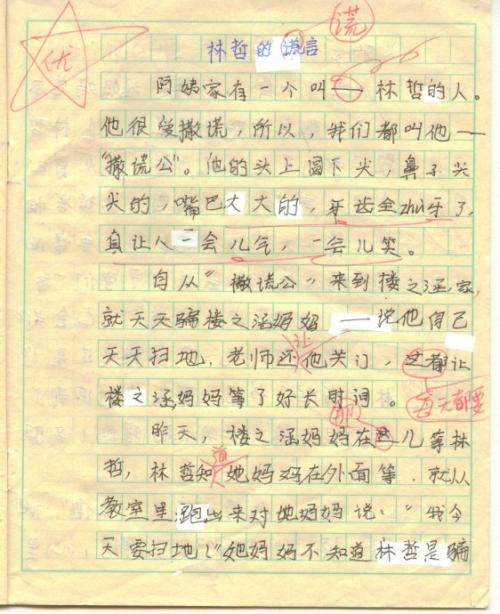 谎
优
林哲的谎言
阿姨家有一个叫——林哲的人。
他很爱撒谎，所以，我们都叫他——
“撒谎公”。他的头上圆下尖，鼻子尖
尖的，嘴巴大大的，牙齿全zhù牙了，
真让人一会儿气，一会儿笑。
自从“撒谎公”来到楼之涵家，
就天天骗楼之涵妈妈——说他自己
天天扫地，老师还让他关门，这都让
每天都要
楼之涵妈妈等了好长时间。
那
昨天，楼之涵妈妈在这儿等林
哲，林哲知道她妈妈在外面等，就从
教室里跑出来对她妈妈说：“我今
天要扫地！”她妈妈不知道林哲是骗